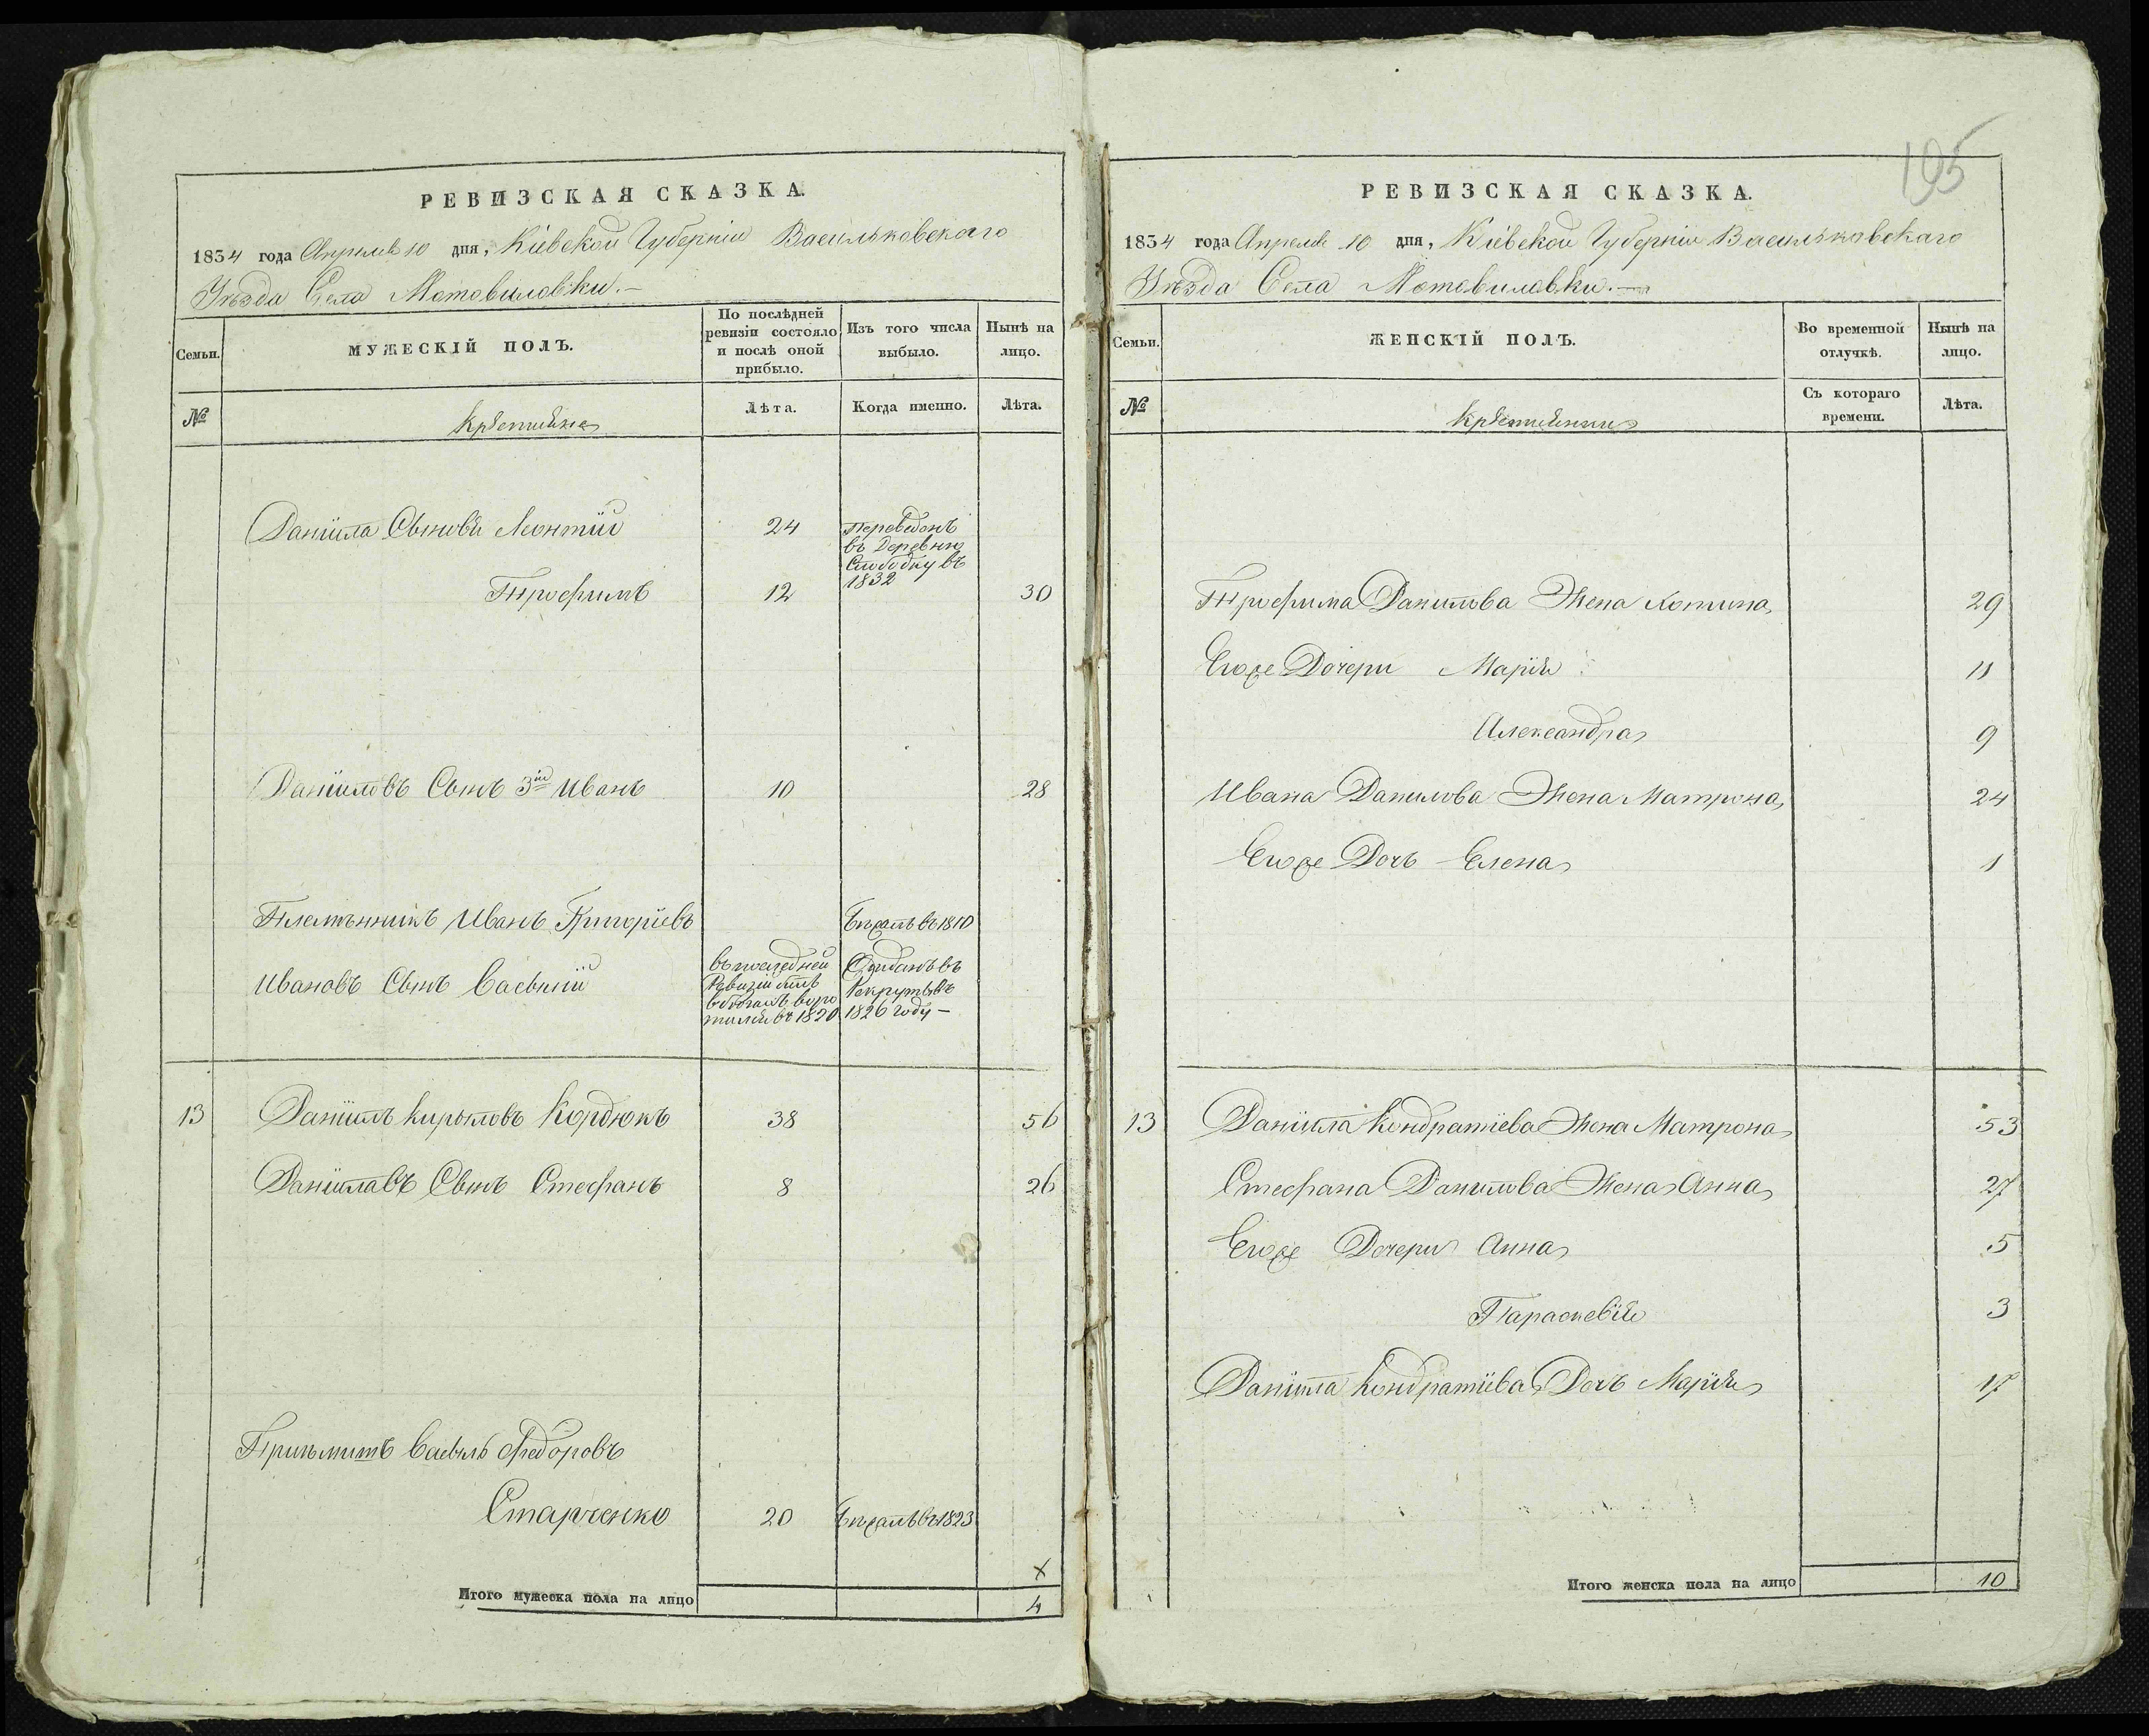 РЕВИЗСКАЯ СКАЗКА.
1834 года Апреля 10 дня, Кіевской Губерніи Васильковскаго
Уѣзда Села Мотовиловки.—
Семьи.
МУЖЕСКІЙ ПОЛЪ.
По послѣдней ревизіи состояло и послѣ оной прибыло.
Изъ того числа выбыло.
Нынѣ на лицо.
№
Лѣта.
Когда именно.
Лѣта.
Данiила Сыновья Леонтiй 24
Переведенъ
въ Деревню
Слободку въ
1832
Трофимъ 12 30
Данiиловъ Сынъ 3й Иванъ 10 28
Племѣнникъ Иванъ Григорiевъ
Бѣжалъ въ 1810
Ивановъ Сынъ Василiй
въ последней
Ревизiи
1820
Отданъ въ
Рекруты въ
1826 году —
13 Данiилъ Кордюкъ 38 56
Данiилавъ Сынъ Стефанъ 8 26
Василь Федоровъ
Старченко 20 Бѣжалъ въ 1823
x
Итого мужеска пола на лицо 4
195
РЕВИЗСКАЯ СКАЗКА.
1834 года Апреля 10 дня, Кіевской Губерніи Васильковскаго
Уѣзда Села Мотовиловки.—
Семьи.
ЖЕНСКІЙ ПОЛЪ.
Во временной отлучкѣ.
Нынѣ на лицо.
№
Съ котораго времени.
Лѣта.
Трофима Данилова Жена 29
Егоже Дочери Марiя 11
Александра 9
Ивана Данилова Жена Матрона 24
Егоже Дочь Елена 1
13 Данiила Кондратiева Жена Матрона 53
Стефана Данилова Жена Анна 27
Егоже Дочери Анна 5
Параскевiя 3
Данiила Кондратiева Дочь Марiя 17
Итого женска пола на лицо 10